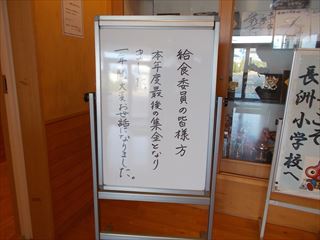 給食委員の皆様方
本年度最後の集金となり
ました。
一年間、大変お世話になりました。
こそ
長洲小学校へ